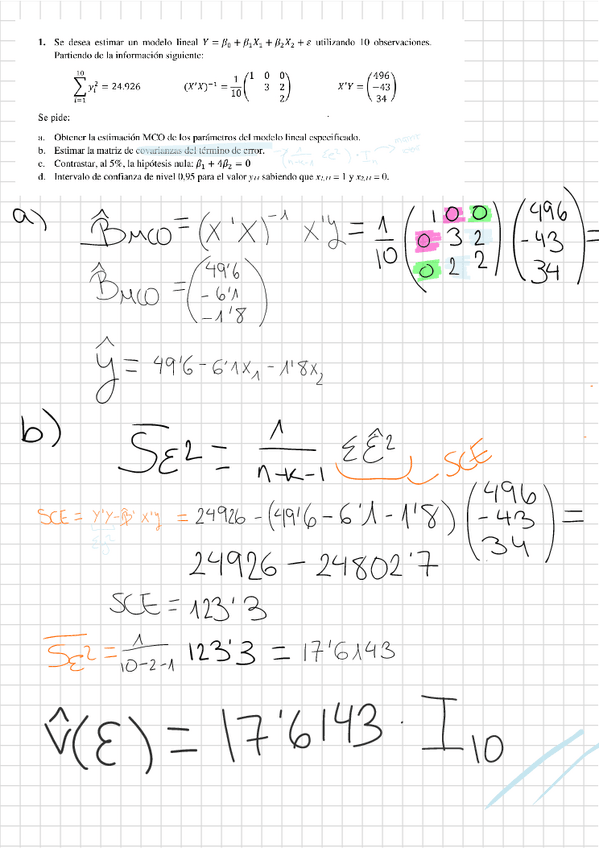 1. Se desea estimar un modelo lineal Y = β₀ + β₁X₁ + β₂X₂ + ε utilizando 10 observaciones.
Partiendo de la información siguiente:
∑_{i=1}^{10} y_i² = 24.926 (X'X)⁻¹ = 1/10 (1 0 0; 3 2; 2) X'Y = (496; −43; 34)
Se pide:
a. Obtener la estimación MCO de los parámetros del modelo lineal especificado.
b. Estimar la matriz de covarianzas del término de error.
c. Contrastar, al 5%, la hipótesis nula: β₁ + 4β₂ = 0
d. Intervalo de confianza de nivel 0,95 para el valor y₁₁ sabiendo que x₁,₁₁ = 1 y x₂,₁₁ = 0.
a) B̂MCO = (X'X)⁻¹ X'y = 1/10 (1 0 0; 0 3 2; 0 2 2) (496; -43; 34) =
B̂MCO = (49'6; -6'1; -1'8)
ŷ = 49'6 - 6'1x₁ - 1'8x₂
b) Sε² = 1/(n-k-1) Σε̂² SCE
SCE = Y'Y-B̂' X'y = 24926 - (49'6 - 6'1 - 1'8) (496; -43; 34) =
24926 - 24802'7
SCE = 123'3
Sε² = 1/(10-2-1) 123'3 = 17'6143
V̂(ε) = 17'6143 · I₁₀